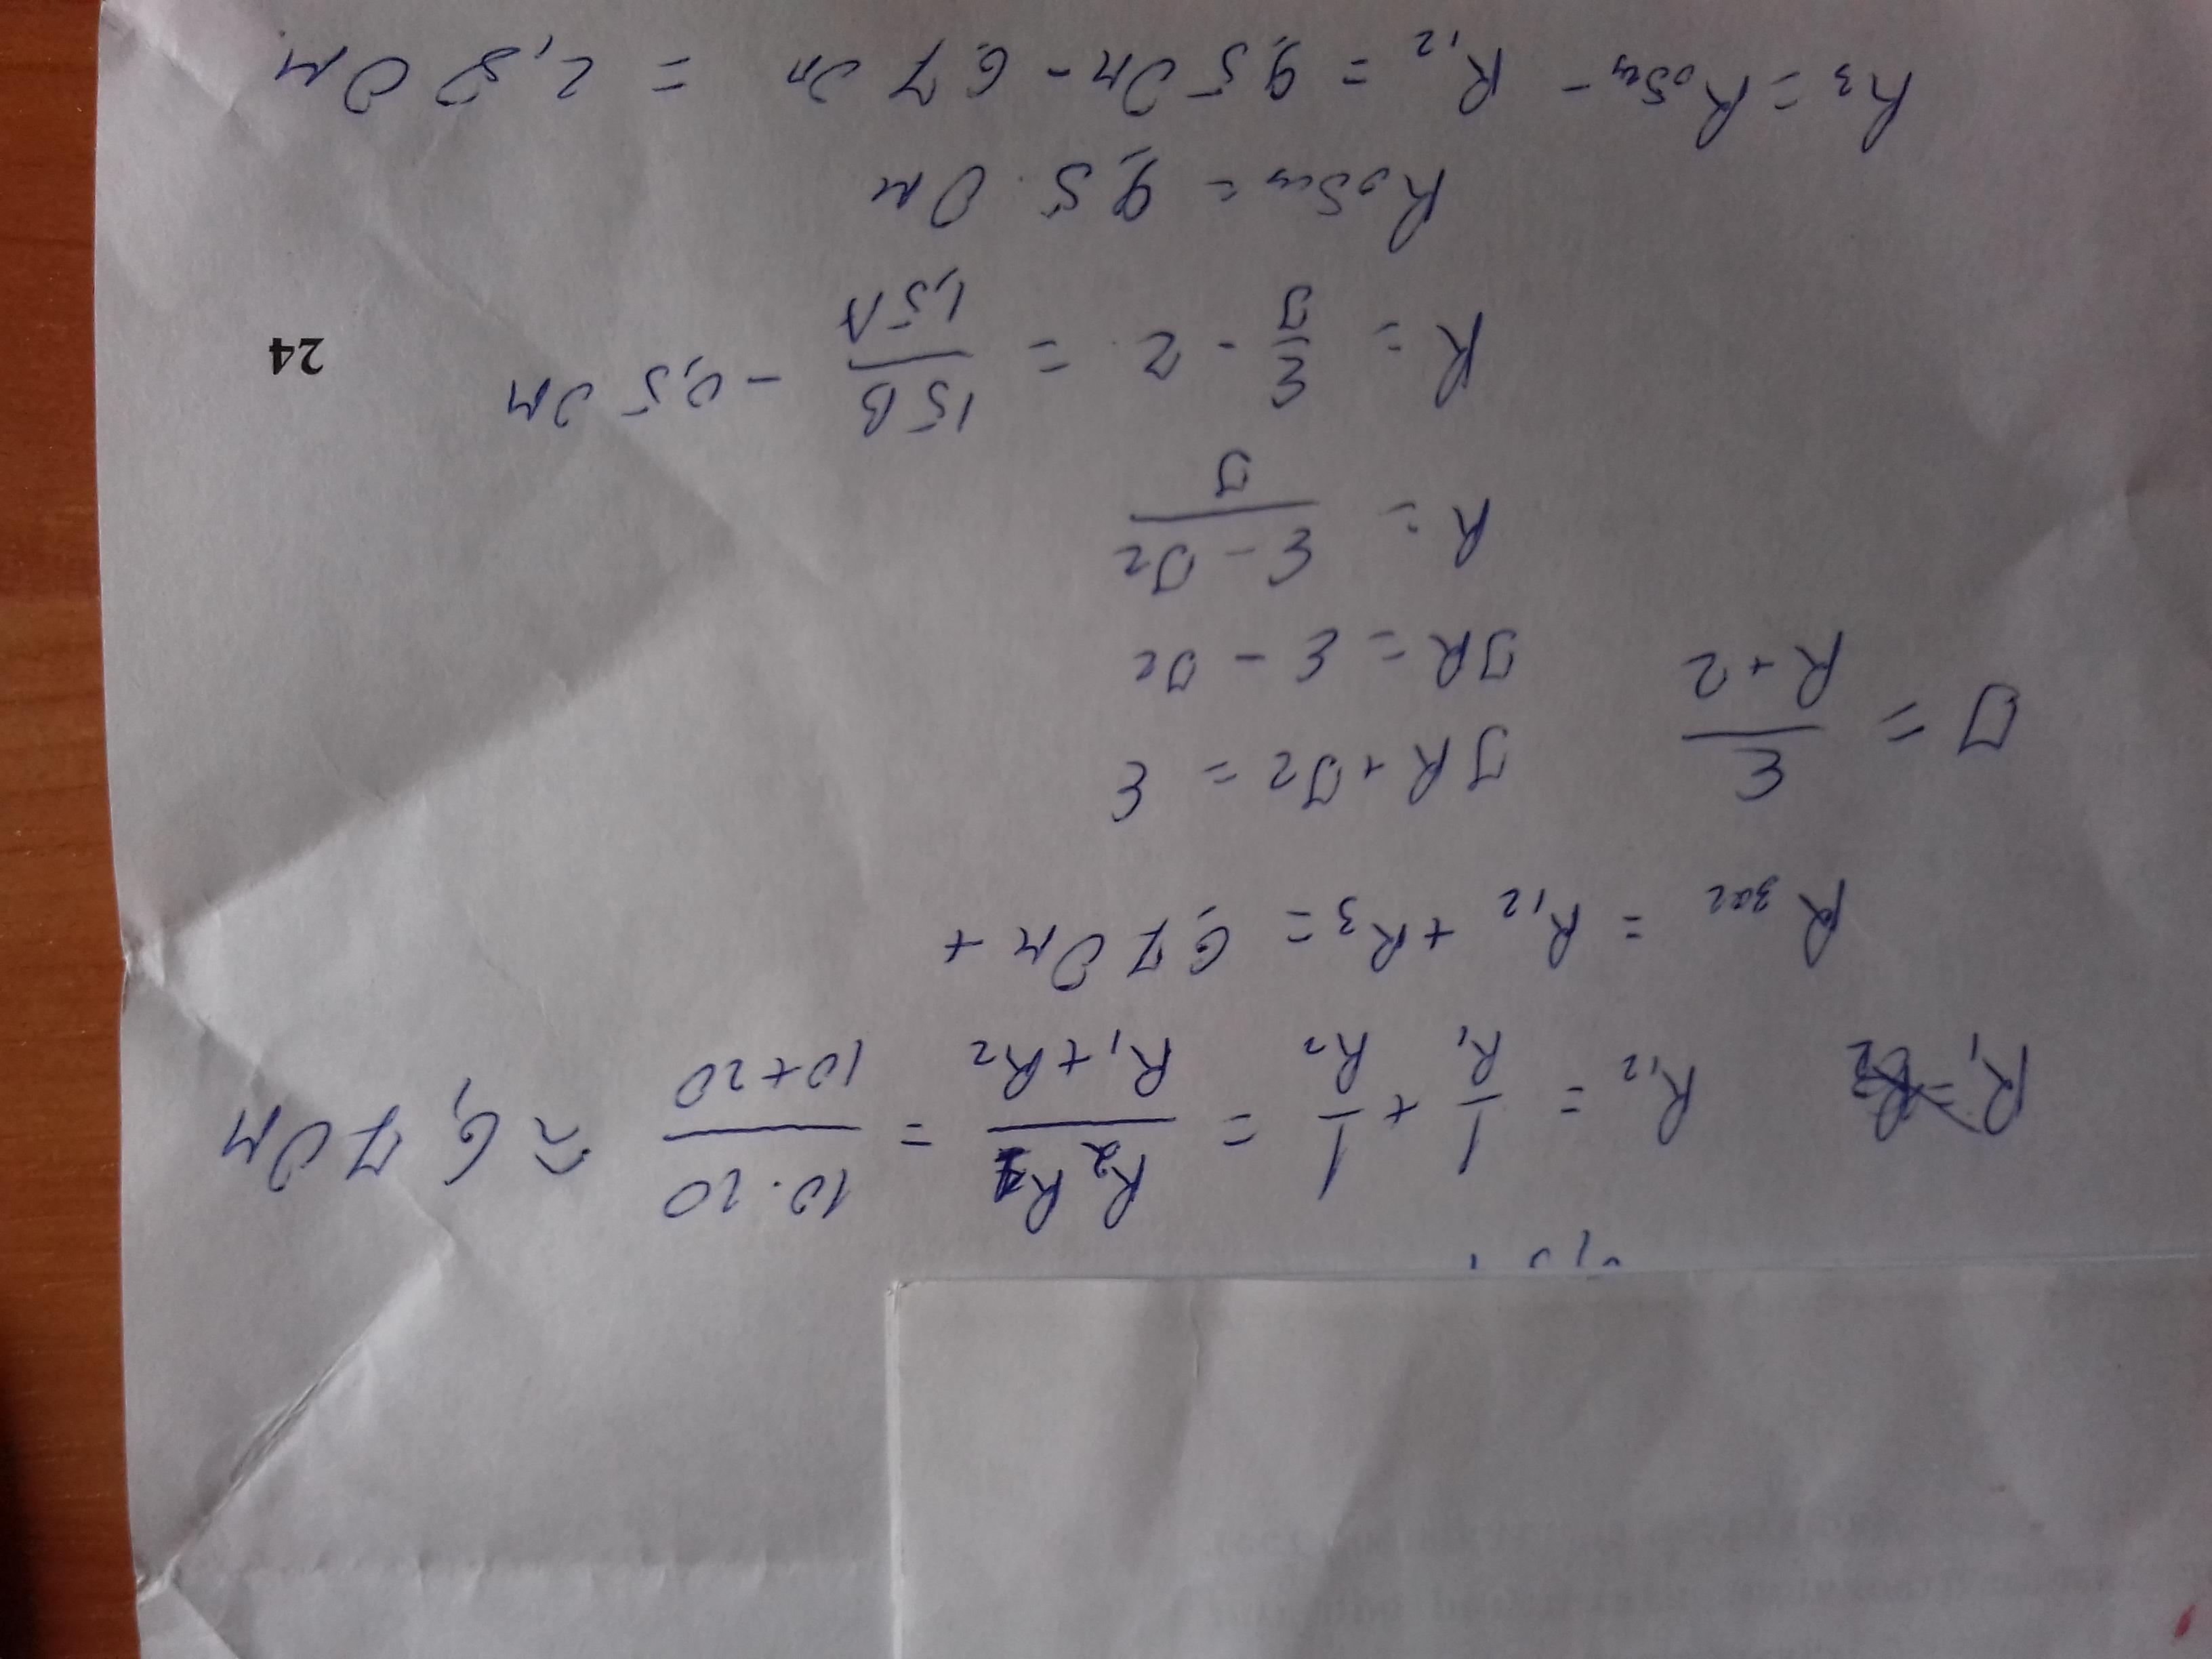 R₁ R₁₂ = 1/R₁ + 1/R₂ = R₂R₁/(R₁+R₂) = 10·20/(10+20) ≈ 6,7 Ом
Rзаг = R₁₂ + R₃ = 6,7 Ом +
I = ε/(R+r)
IR + Ir = ε
IR = ε - Ir
R = (ε - Ir)/I
R = ε/I - r = 15В/1,5А - 0,5 Ом
24
Rобщ = 9,5 Ом
R₃ = Rобщ - R₁₂ = 9,5 Ом - 6,7 Ом = 2,8 Ом